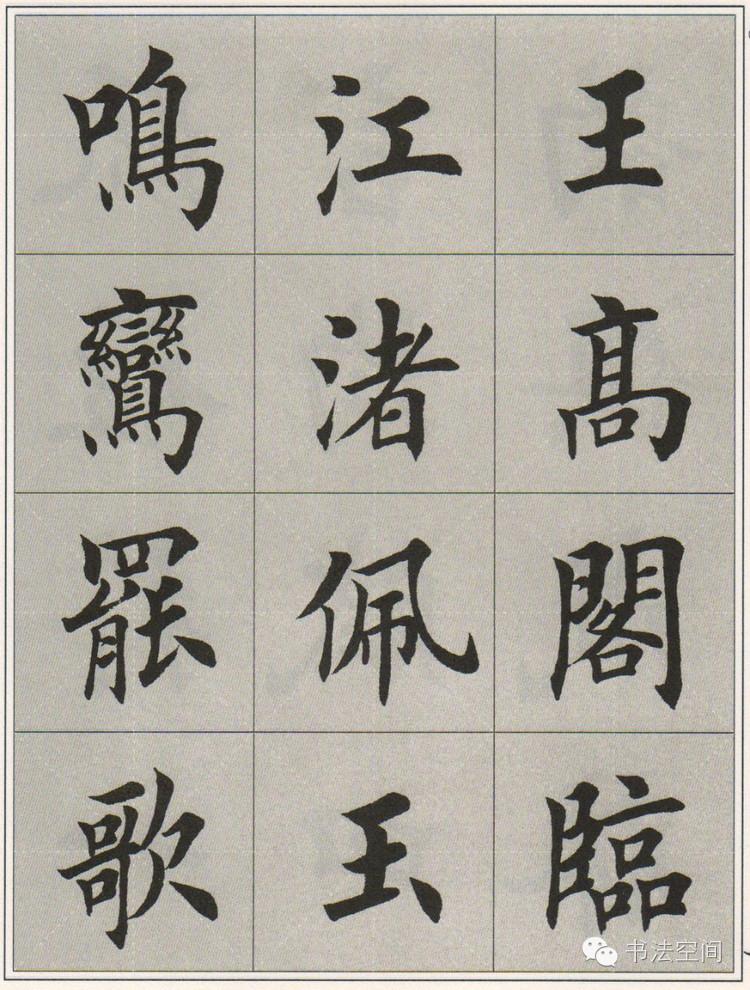 王髙閣臨
江渚佩玉
鳴鸞罷歌
书法空间